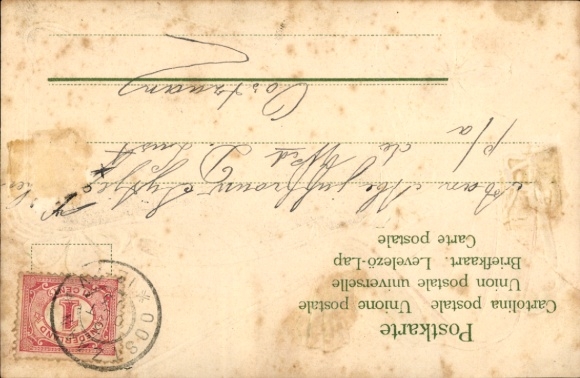 Postkarte
Cartolina postale Unione postale
Union postale universelle
Briefkaart. Levelező-Lap
Carte postale
Aan Mejuffrouw
p/a de Wed D
Oostzaan
NEDERLAND
1
CENT
OOS